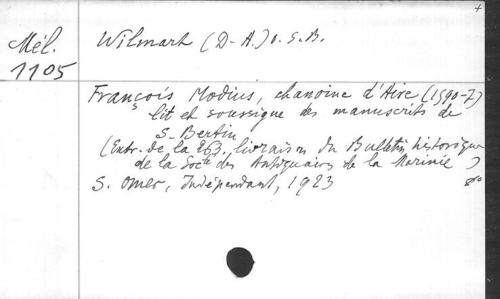 +
Mél.
1105
Wilmart (D-A.) O.S.B.
François Modius, chanoine d'Aire (1590-7)
lit et soussigne des manuscrits de
S. Bertin
(Extr. de la 263e livraison du Bulletin historique
de la Socté des Antiquaires de la Morinie)
S. Omer, Indépendant, 1923
8o